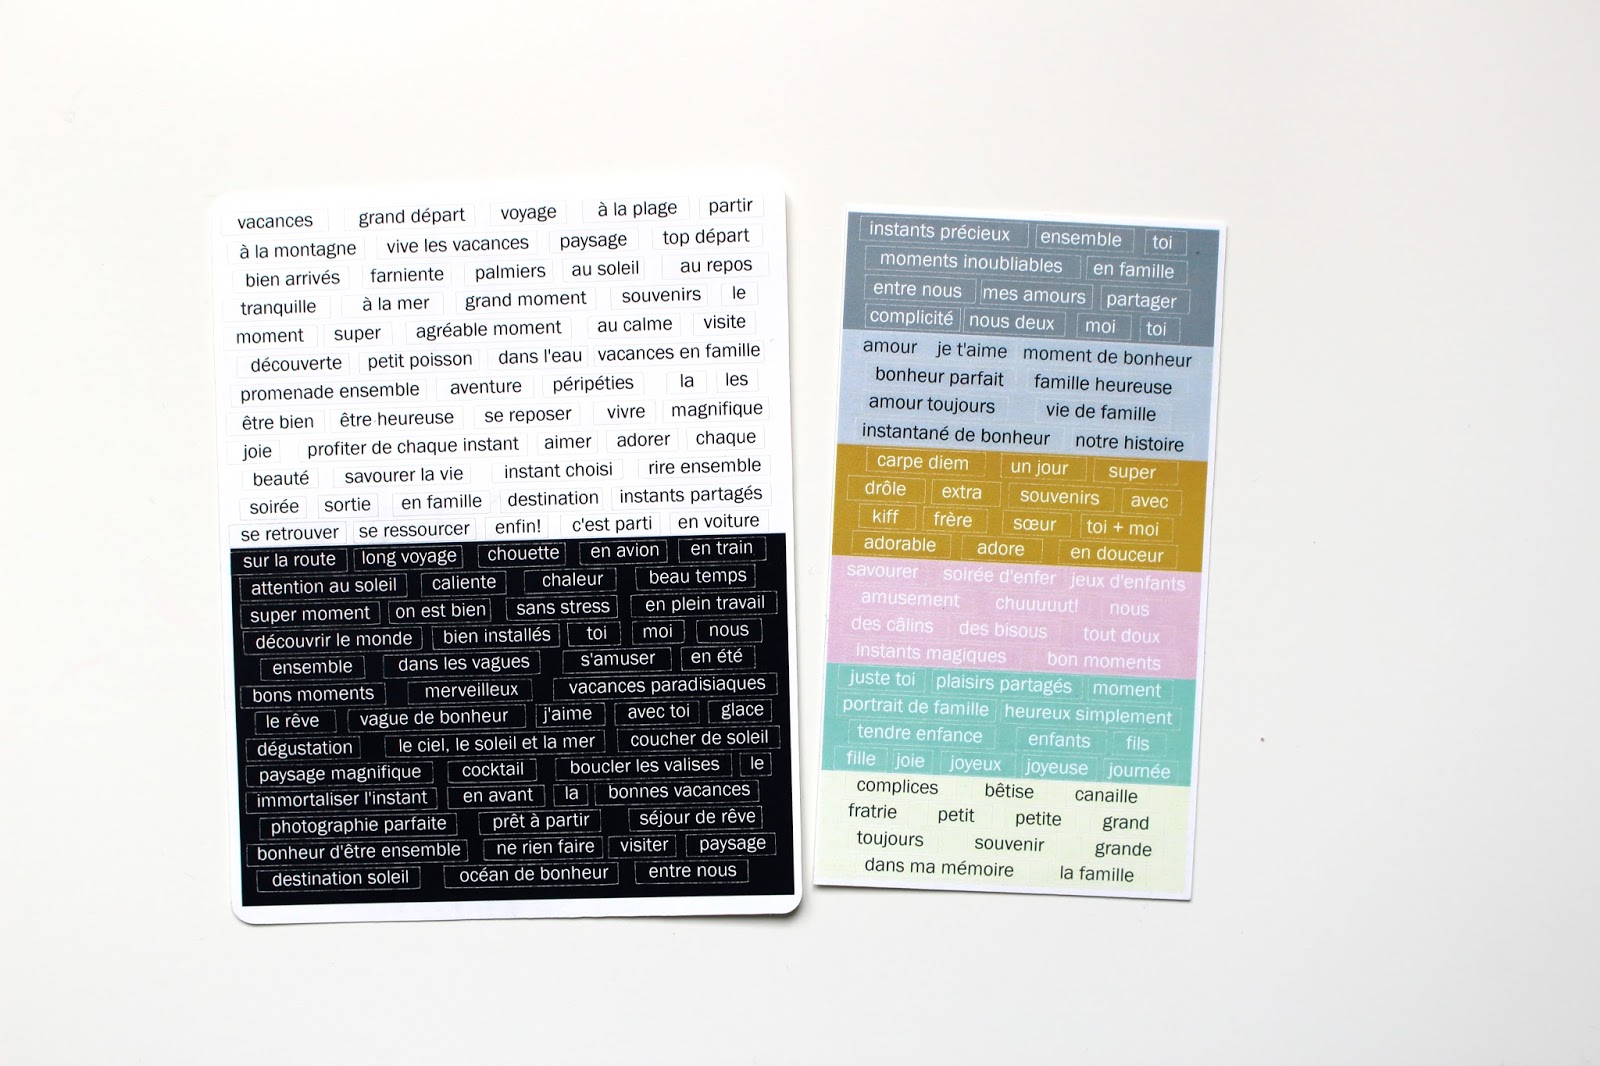 vacances grand départ voyage à la plage partir
à la montagne vive les vacances paysage top départ
bien arrivés farniente palmiers au soleil au repos
tranquille à la mer grand moment souvenirs le
moment super agréable moment au calme visite
découverte petit poisson dans l'eau vacances en famille
promenade ensemble aventure péripéties la les
être bien être heureuse se reposer vivre magnifique
joie profiter de chaque instant aimer adorer chaque
beauté savourer la vie instant choisi rire ensemble
soirée sortie en famille destination instants partagés
se retrouver se ressourcer enfin! c'est parti en voiture
sur la route long voyage chouette en avion en train
attention au soleil caliente chaleur beau temps
super moment on est bien sans stress en plein travail
découvrir le monde bien installés toi moi nous
ensemble dans les vagues s'amuser en été
bons moments merveilleux vacances paradisiaques
le rêve vague de bonheur j'aime avec toi glace
dégustation le ciel, le soleil et la mer coucher de soleil
paysage magnifique cocktail boucler les valises le
immortaliser l'instant en avant la bonnes vacances
photographie parfaite prêt à partir séjour de rêve
bonheur d'être ensemble ne rien faire visiter paysage
destination soleil océan de bonheur entre nous
instants précieux ensemble toi
moments inoubliables en famille
entre nous mes amours partager
complicité nous deux moi toi
amour je t'aime moment de bonheur
bonheur parfait famille heureuse
amour toujours vie de famille
instantané de bonheur notre histoire
carpe diem un jour super
drôle extra souvenirs avec
kiff frère sœur toi + moi
adorable adore en douceur
savourer soirée d'enfer jeux d'enfants
amusement chuuuuut! nous
des câlins des bisous tout doux
instants magiques bon moments
juste toi plaisirs partagés moment
portrait de famille heureux simplement
tendre enfance enfants fils
fille joie joyeux joyeuse journée
complices bêtise canaille
fratrie petit petite grand
toujours souvenir grande
dans ma mémoire la famille